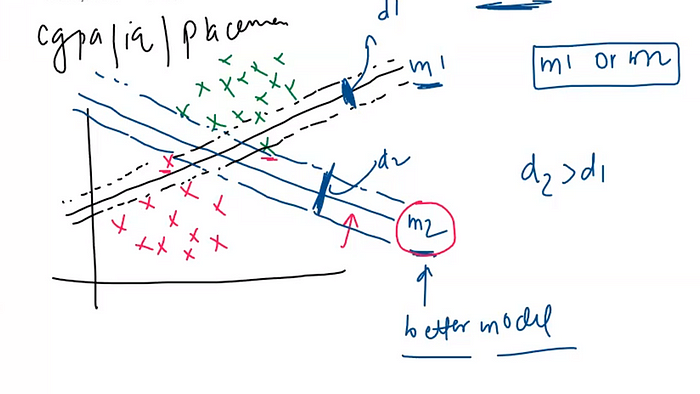 d1
cgpa/iq/placemen
m1
m1 or m2
d2
d2 > d1
m2
better model